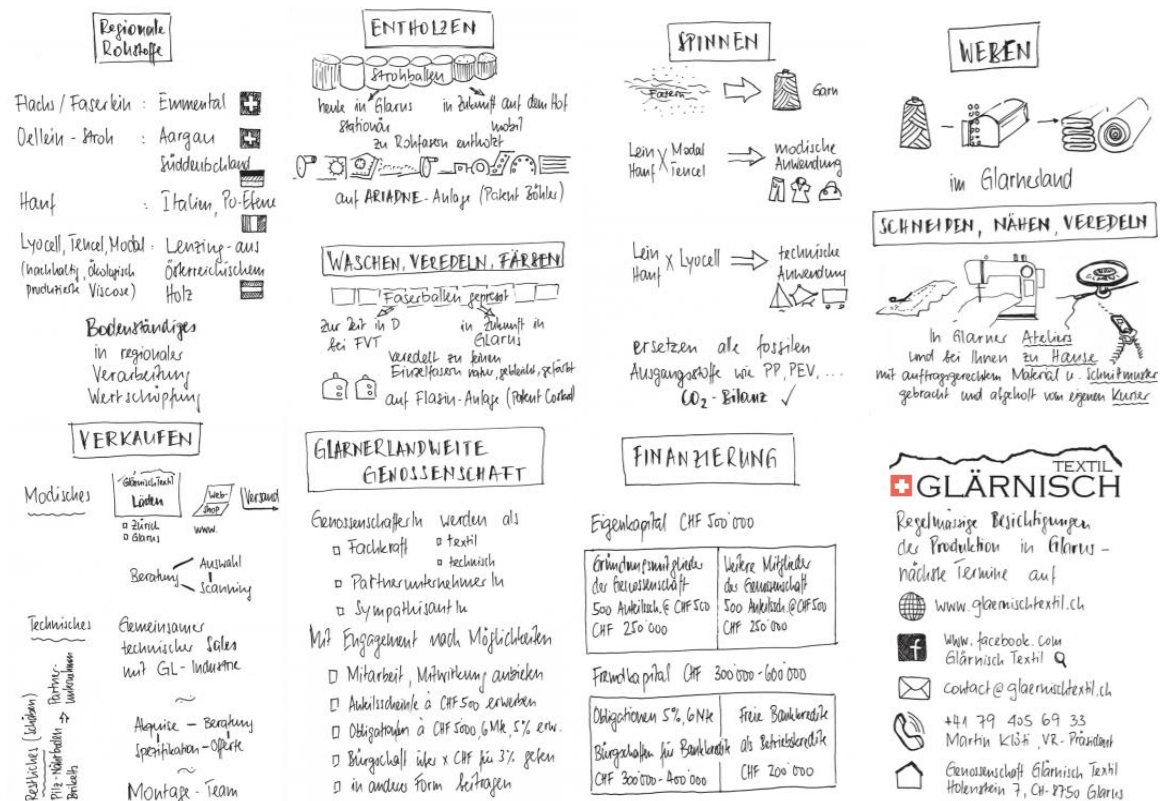 Regionale
Rohstoffe
Flachs / Faserlein : Emmental
Oellein - Stroh : Aargau
Süddeutschland
Hanf : Italien, Po-Ebene
Lyocell, Tencel, Modal : Lenzing - aus
(nachhaltig, ökologisch Österreichischem
produzierte Viscose) Holz
Bodenständiges
in regionaler
Verarbeitung
Wertschöpfung
ENTHOLZEN
Strohballen
heute in Glarus in Zukunft auf dem Hof
stationär mobil
zu Rohfasern entholzt
auf ARIADNE - Anlage (Patent Böhler)
WASCHEN, VEREDELN, FÄRBEN
Faserballen gepresst
zur Zeit in D in Zukunft in
bei FVT Glarus
veredelt zu feinen
Einzelfasern natur, gebleicht, gefärbt
auf Flasin - Anlage (Patent
SPINNEN
Fasern Garn
Lein X Modal modische
Hanf Tencel Anwendung
Lein X Lyocell technische
Hanf Anwendung
ersetzen alle fossilen
Ausgangsstoffe wie PP, PEV, ...
CO2 - Bilanz ✓
WEBEN
im Glarnerland
SCHNEIDEN, NÄHEN, VEREDELN
In Glarner Ateliers
und bei Ihnen zu Hause
mit auftragsgerechtem Material u. Schnittmuster
gebracht und abgeholt vom eigenen Kurier
VERKAUFEN
Modisches
GlärnischTextil
Läden
Web-
shop
Versand
Zürich www.
Glarus
Beratung Auswahl
Scanning
Technisches
Gemeinsamer
technischer Sales
mit GL - Industrie
~
Akquise - Beratung
Spezifikation - Offerte
~
Montage - Team
Restliches (Schäben)
Pilz - Nährballen ⇒ Partner-
Briketts unternehmen
GLARNERLANDWEITE
GENOSSENSCHAFT
GenossenschafterIn werden als
Fachkraft textil
technisch
PartnerunternehmerIn
SympathisantIn
Mit Engagement nach Möglichkeiten
Mitarbeit, Mitwirkung anbieten
Anteilschein/e à CHF 500 erwerben
Obligation/en à CHF 5000, 6 Mte, 5% erw.
Bürgschaft über x CHF für 3% geben
in anderer Form beitragen
FINANZIERUNG
Eigenkapital CHF 500'000
Gründungsmitglieder
der Genossenschaft
500 Anteilsch. @ CHF 500
CHF 250'000
Weitere Mitglieder
der Genossenschaft
500 Anteilsch. @ CHF 500
CHF 250'000
Fremdkapital CHF 300'000 - 600'000
Obligationen 5%, 6 Mte Freie Bankkredite
Bürgschaften für Bankkredite als Betriebskredite
CHF 300'000 - 400'000 CHF 200'000
TEXTIL
GLÄRNISCH
Regelmässige Besichtigungen
der Produktion in Glarus -
nächste Termine auf
www.glaernischtextil.ch
www.facebook.com
Glärnisch Textil
contact@glaernischtextil.ch
+41 79 405 69 33
Martin Klöti, VR - Präsident
Genossenschaft Glärnisch Textil
Holenstein 7, CH-8750 Glarus